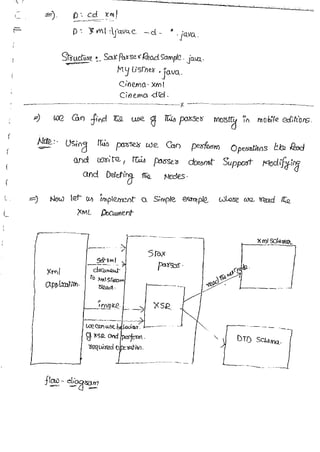 =). D: cd xml
D: xml:\javac -d . *.java.
Structure:. SaxParserReadSample.java.
MyListner.java.
Cinema.xml
Cinema.dtd.
=) we can find the use of this parser mostly in mobile editions.
Note:- Using this parser we can perform operations like Read
and write, this parser doesnt support modifying
and Deleting the Nodes.
=) Now let us implement a simple example where we read the
XML Document
Xml
application.
set xml
document
to xmlstream
Read.
invoke
we can use the
of XSR and perform
required operation.
Stax
parser.
XSR
read the
Xml Schema
DTD Schema.
flow-diagram